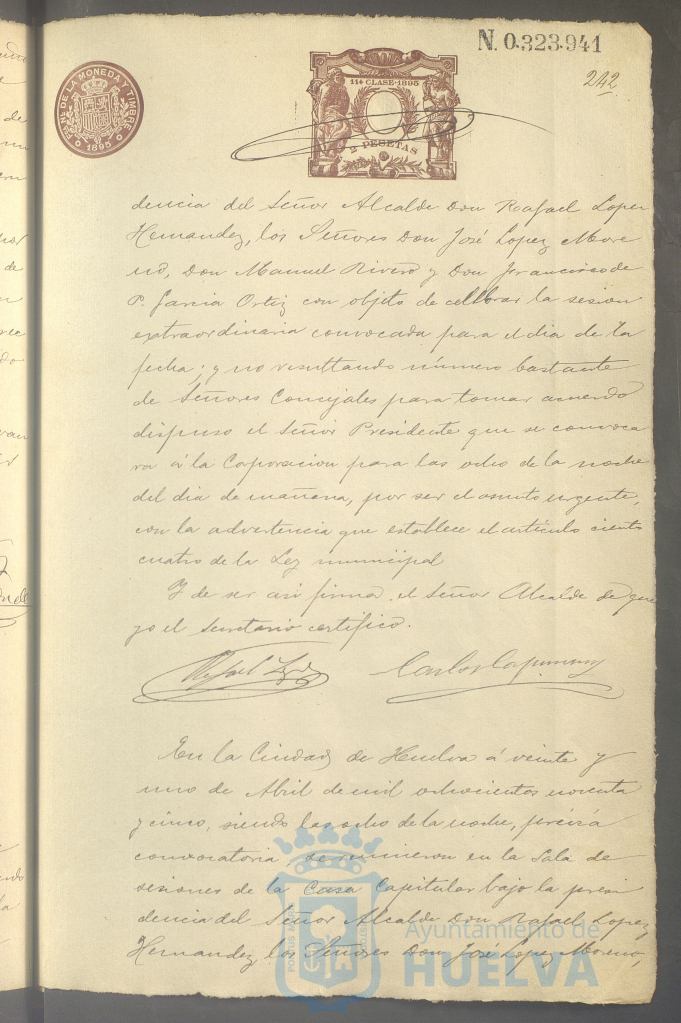 N. 0.323.941
242
FCA. N. DE LA MONEDA Y TIMBRE
1895
11ª CLASE-1895
2 PESETAS
dencia del Señor Alcalde Don Rafael Lopez
Hernandez, los Señores Don José Lopez More
no, Don Manuel Rivero y Don Francisco de
P. Garcia Ortiz con objeto de celebrar la sesion
extraordinaria convocada para el dia de la
fecha; y no resultando número bastante
de Señores Concejales para tomar acuerdo
dispuso el Señor Presidente que se convoca
ra á la Corporacion para las ocho de la noche
del dia de mañana, por ser el asunto urgente,
con la advertencia que establece el artículo ciento
cuatro de la Ley municipal
Y de ser asi firma el Señor Alcalde de que
yo el Secretario certifico.
Rafael Lopez
Carlos
En la Ciudad de Huelva á veinte y
uno de Abril de mil ochocientos noventa
y cinco, siendo las ocho de la noche, prévia
convocatoria, se reunieron en la Sala de
sesiones de la Casa Capitular bajo la presi
dencia del Señor Alcalde Don Rafael Lopez
Hernandez, los Señores Don José Lopez Moreno,
Ayuntamiento de
HUELVA